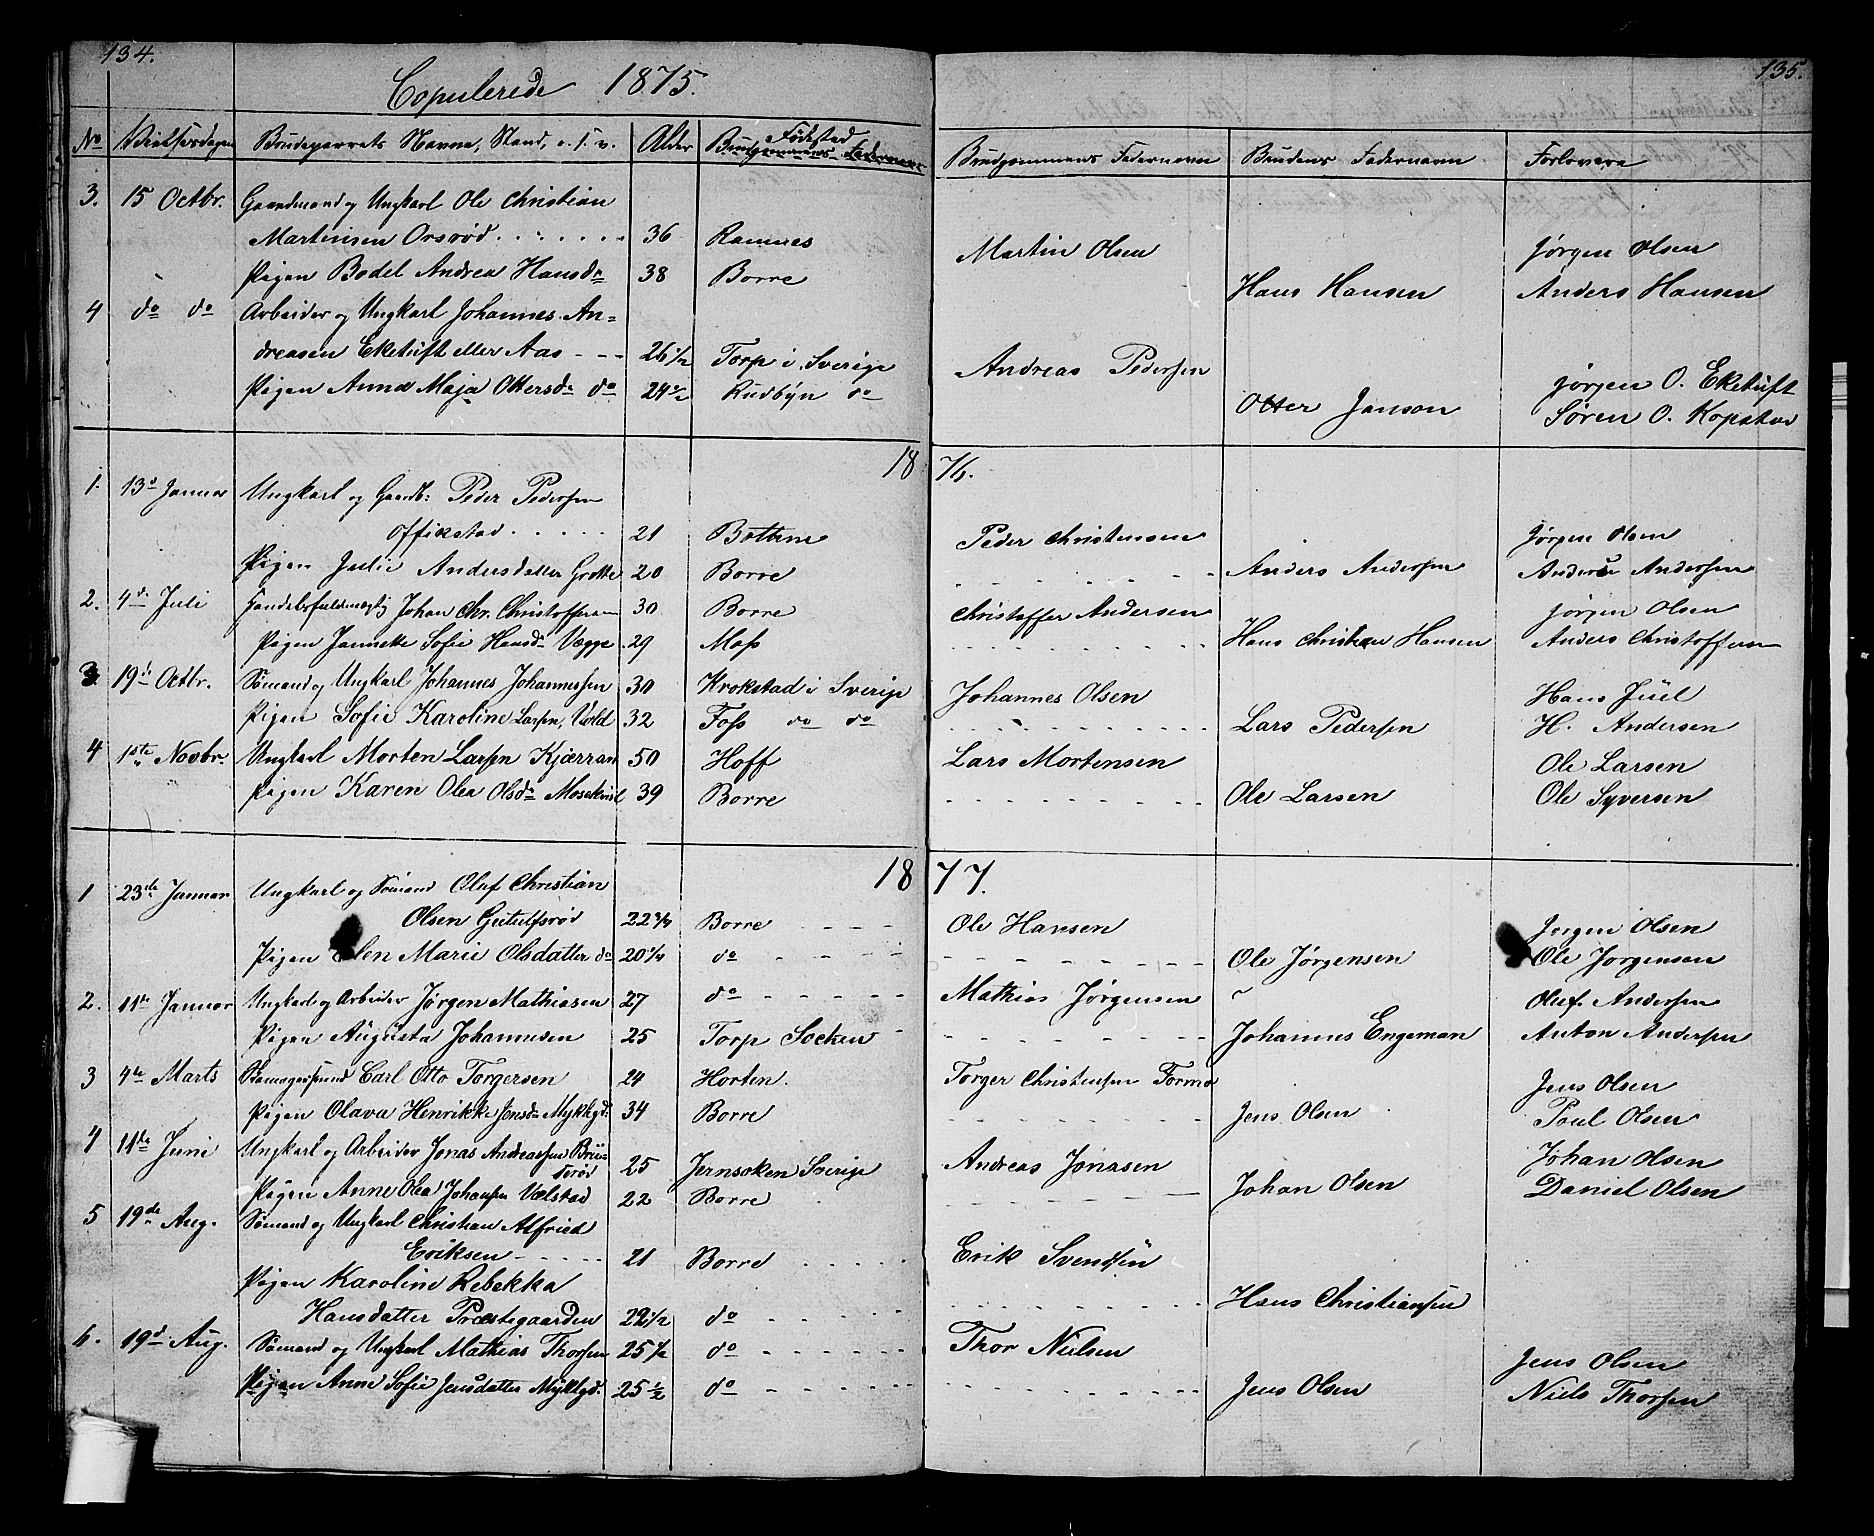 134.
Copulerede 1875.
No Vielsesdagen Brudeparrets Navne, Stand, o. s. v. Alder Fødested
Brudgommens Fadernavn
3. 15 Octbr. Gaardmand og Ungkarl Ole Christian
Martinsen Orsrød 36 Ramnes
Pigen Bodel Andrea Hansdr 38 Borre
4 do do Arbeider og Ungkarl Johannes An=
dreasen Eketuft eller Aas 26 1/2 Torp i Sverige
Pigen Anna Maja Ottersdr do 24 1/2 Rudbyn do
18
1. 13de Januar Ungkarl og Gaardb: Peder Pedersen
Offikstad 21 Bottne
Pigen Julie Andersdatter Grotte 20 Borre
2. 4de Juli Handelsfuldmægtig Johan Chr. Christoffersen 30 Borre
Pigen Jannette Sofie Hansdr Vegge 29 Moss
3. 19de Octbr. Sømand og Ungkarl Johannes Johannessen 30 Krokstad i Sverige
Pigen Sofie Karoline Larsen, Vold 32 Foss do do
4 1ste Novbr. Ungkarl Morten Larsen Kjærran 50 Hoff
Pigen Karen Olea Olsdr 39 Borre
18
1 23de Januar Ungkarl og Sømand Oluf Christian
Olsen Gutulfsrød 22 3/4 Borre
Pigen Elen Marie Olsdatter do 20 1/4 do
2. 11te Januar Ungkarl og Arbeider Jørgen Mathiasen 27 do
Pigen Augusta Johannesen 25 Torp Socken
3 4de Marts Carl Otto Torgersen 24 Horten.
Pigen Olava Henrikke Jensdr Myklegd. 34 Borre
4 11te Juni Ungkarl og Arbeider Jonas Andreassen Bru=
srød 25 Jernsoken Sverige
Pigen Anne Olea Johansen Vælstad 22 Borre
5 19de Aug. Sømand og Ungkarl Christian Alfried
Eriksen 21 Borre
Pigen Karoline Rebekka
Hansdatter Præstegaarden 22 1/2 do
6. 19de Aug. Sømand og Ungkarl Mathias Thorsen 25 1/2 do
Pigen Anne Sofie Jensdatter Myklegd. 25 1/2 do
135.
Brudgommens Fadernavn Brudens Fadernavn Forlovere
Martin Olsen Jørgen Olsen
Hans Hansen Anders Hansen
Andreas Pedersen Jørgen O. Eketuft
Otter Janson Søren O. Kopstad
76.
Peder Christensen Jørgen Olsen
Anders Andersen Anders Andersen
Christoffer Andersen Jørgen Olsen
Hans Christian Hansen Anders Christoffersen
Johannes Olsen Hans Juel
Lars Pedersen H. Andersen
Lars Mortensen Ole Larsen
Ole Larsen Ole Syversen
77.
Ole Hansen Jørgen Olsen
Ole Jørgensen Ole Jørgensen
Mathias Jørgensen Oluf. Andersen
Johannes Engeman Anton Andersen
Torger Christensen Formo Jens Olsen
Jens Olsen Poul Olsen
Andreas Jonasen Johan Olsen
Johan Olsen Daniel Olsen
Erik Svendsen
Hans Christiansen
Thor Nielsen Jens Olsen
Jens Olsen Niels Thorsen